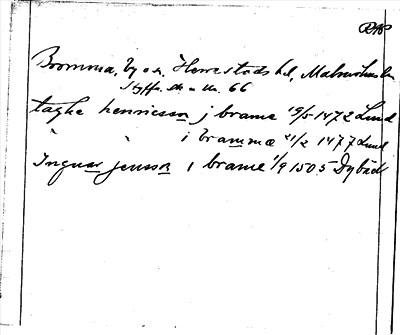 Bromma, by o sn, Herrestads hd, Malmöhus län
Styffe Sk o Ur. 66
taghe henriczson j brame 19/5 1472 Lund
" " i bramme 21/2 1477 Lund
Inguar jensson i brame 1/9 1505 Dybäck